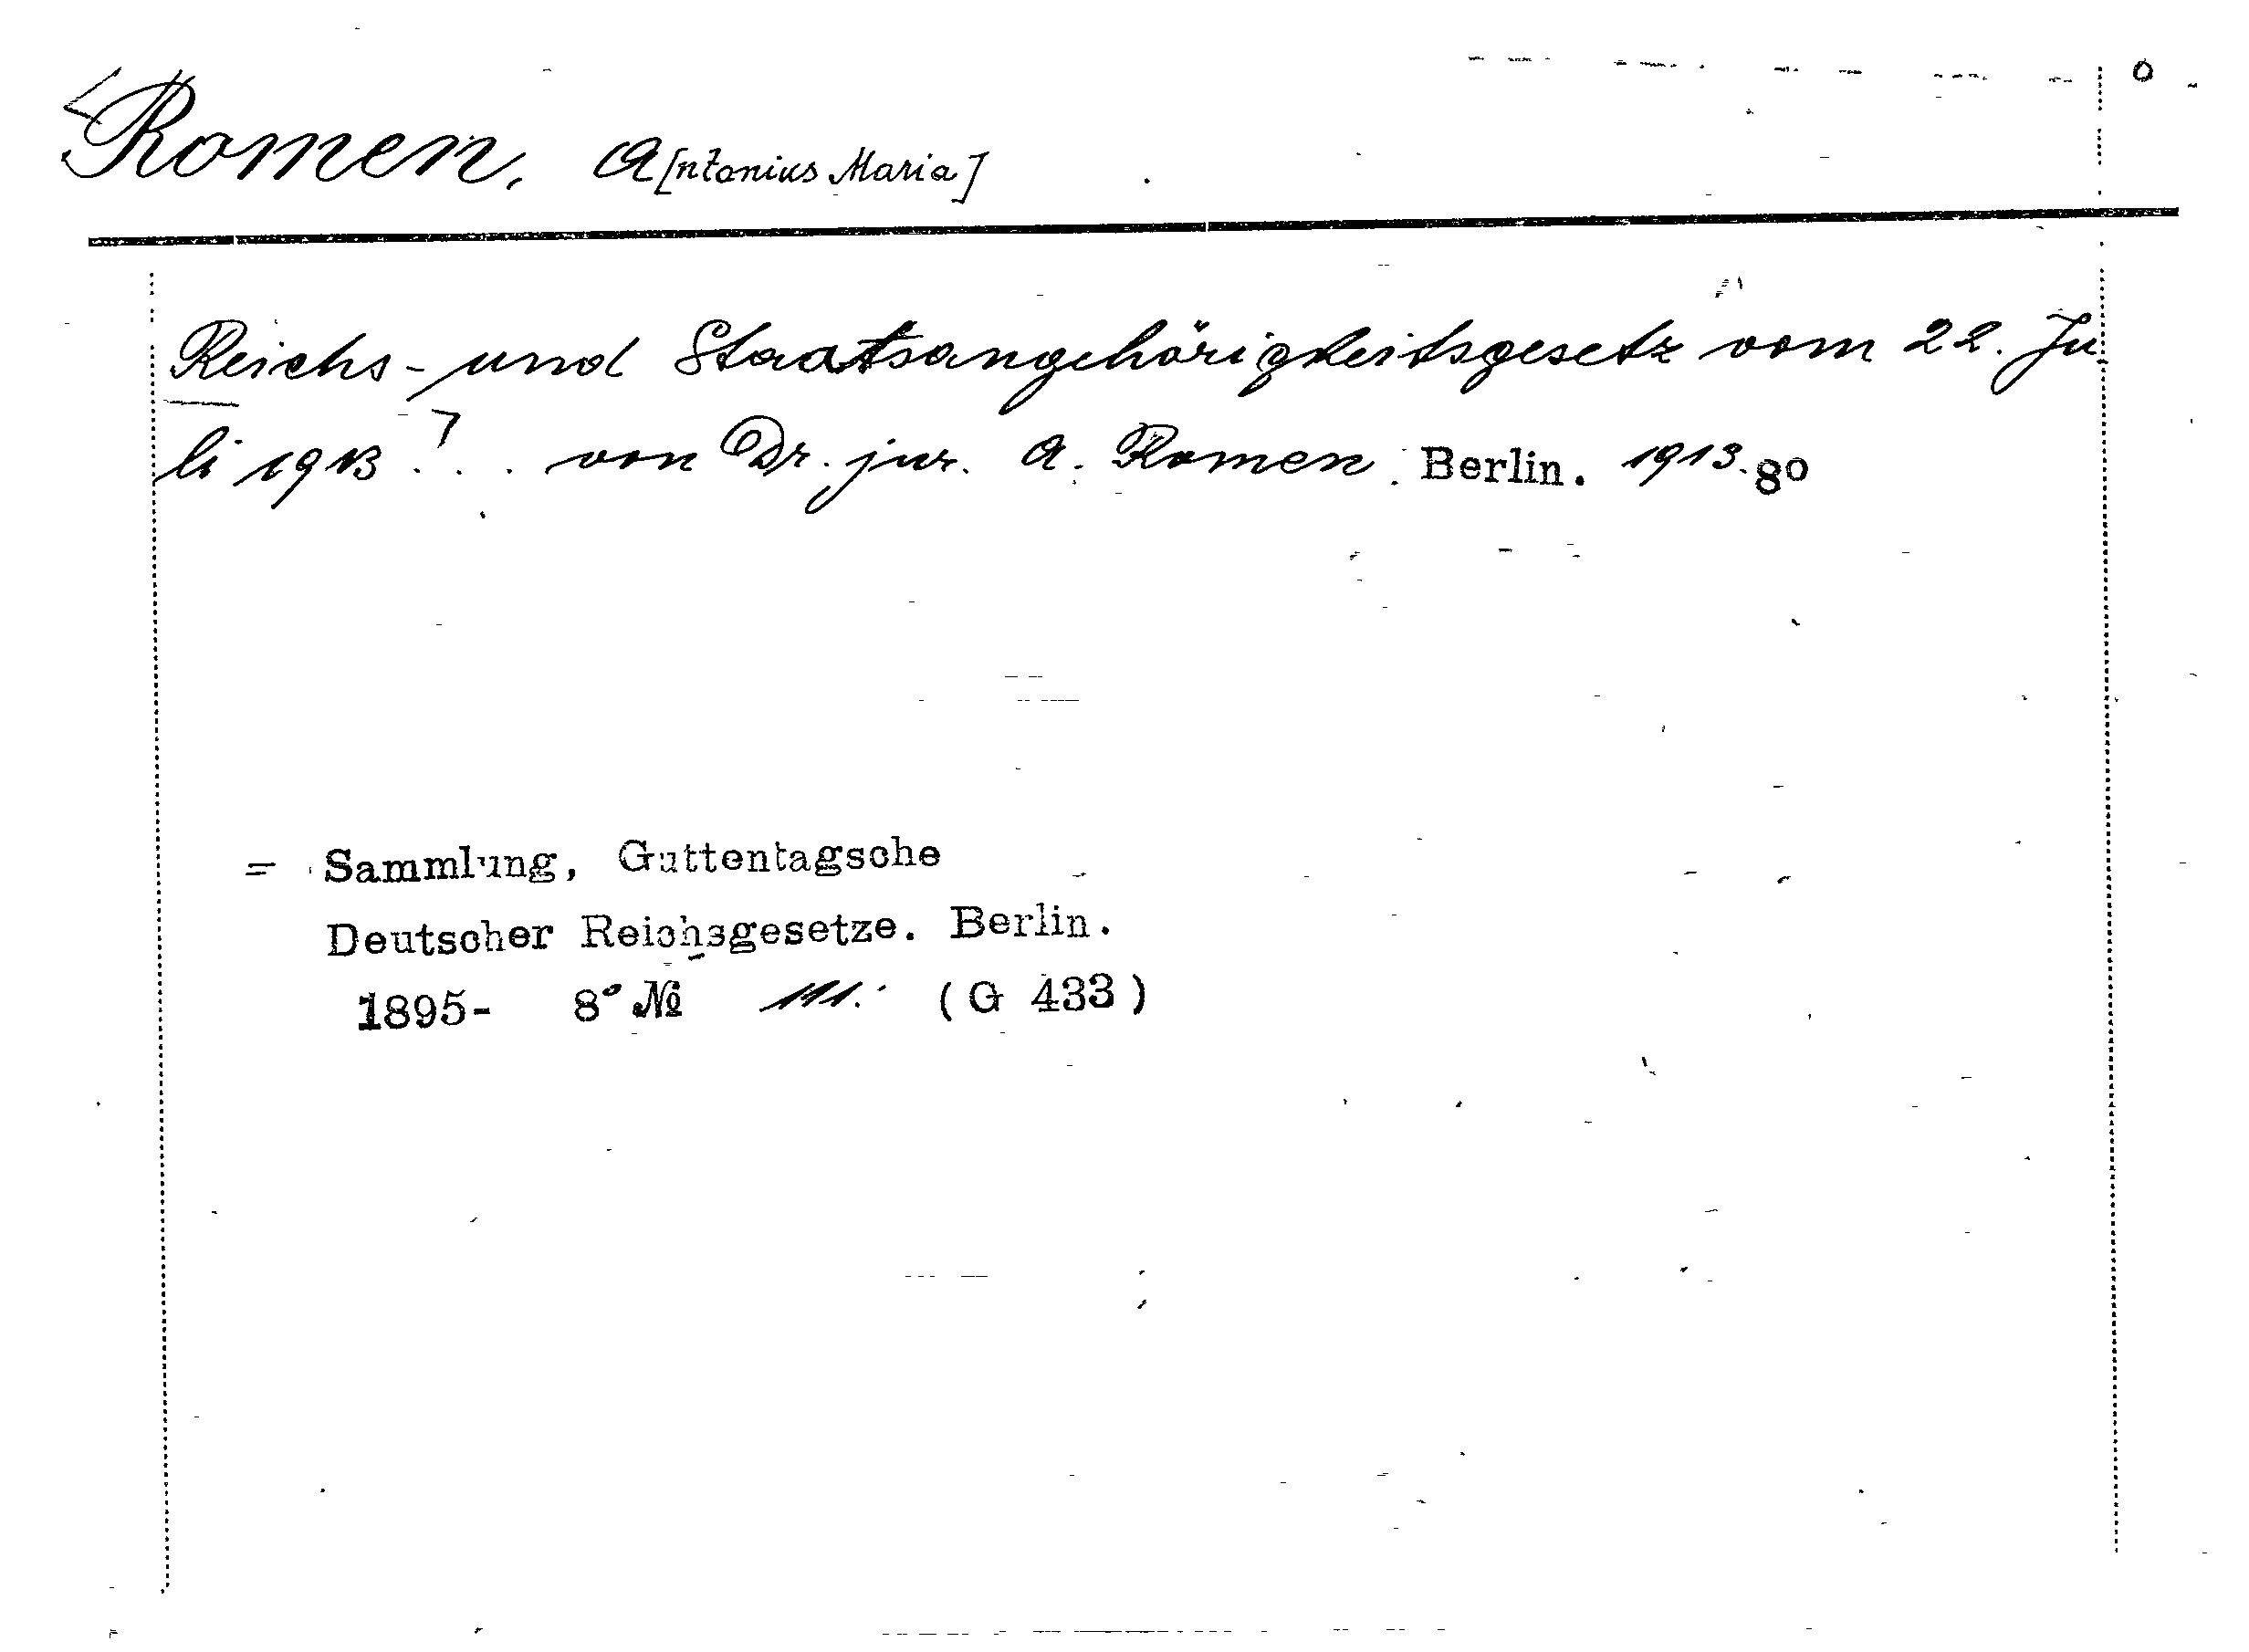 Romen, A[ntonius Maria]
Reichs- und Staatsangehörigkeitsgesetz vom 22. Ju-
li 1913 ... von Dr. jur. A. Romen. Berlin. 1913. 8°
= Sammlung, Guttentagsche
Deutscher Reichsgesetze. Berlin.
1895- 8° № 111. (G 433)